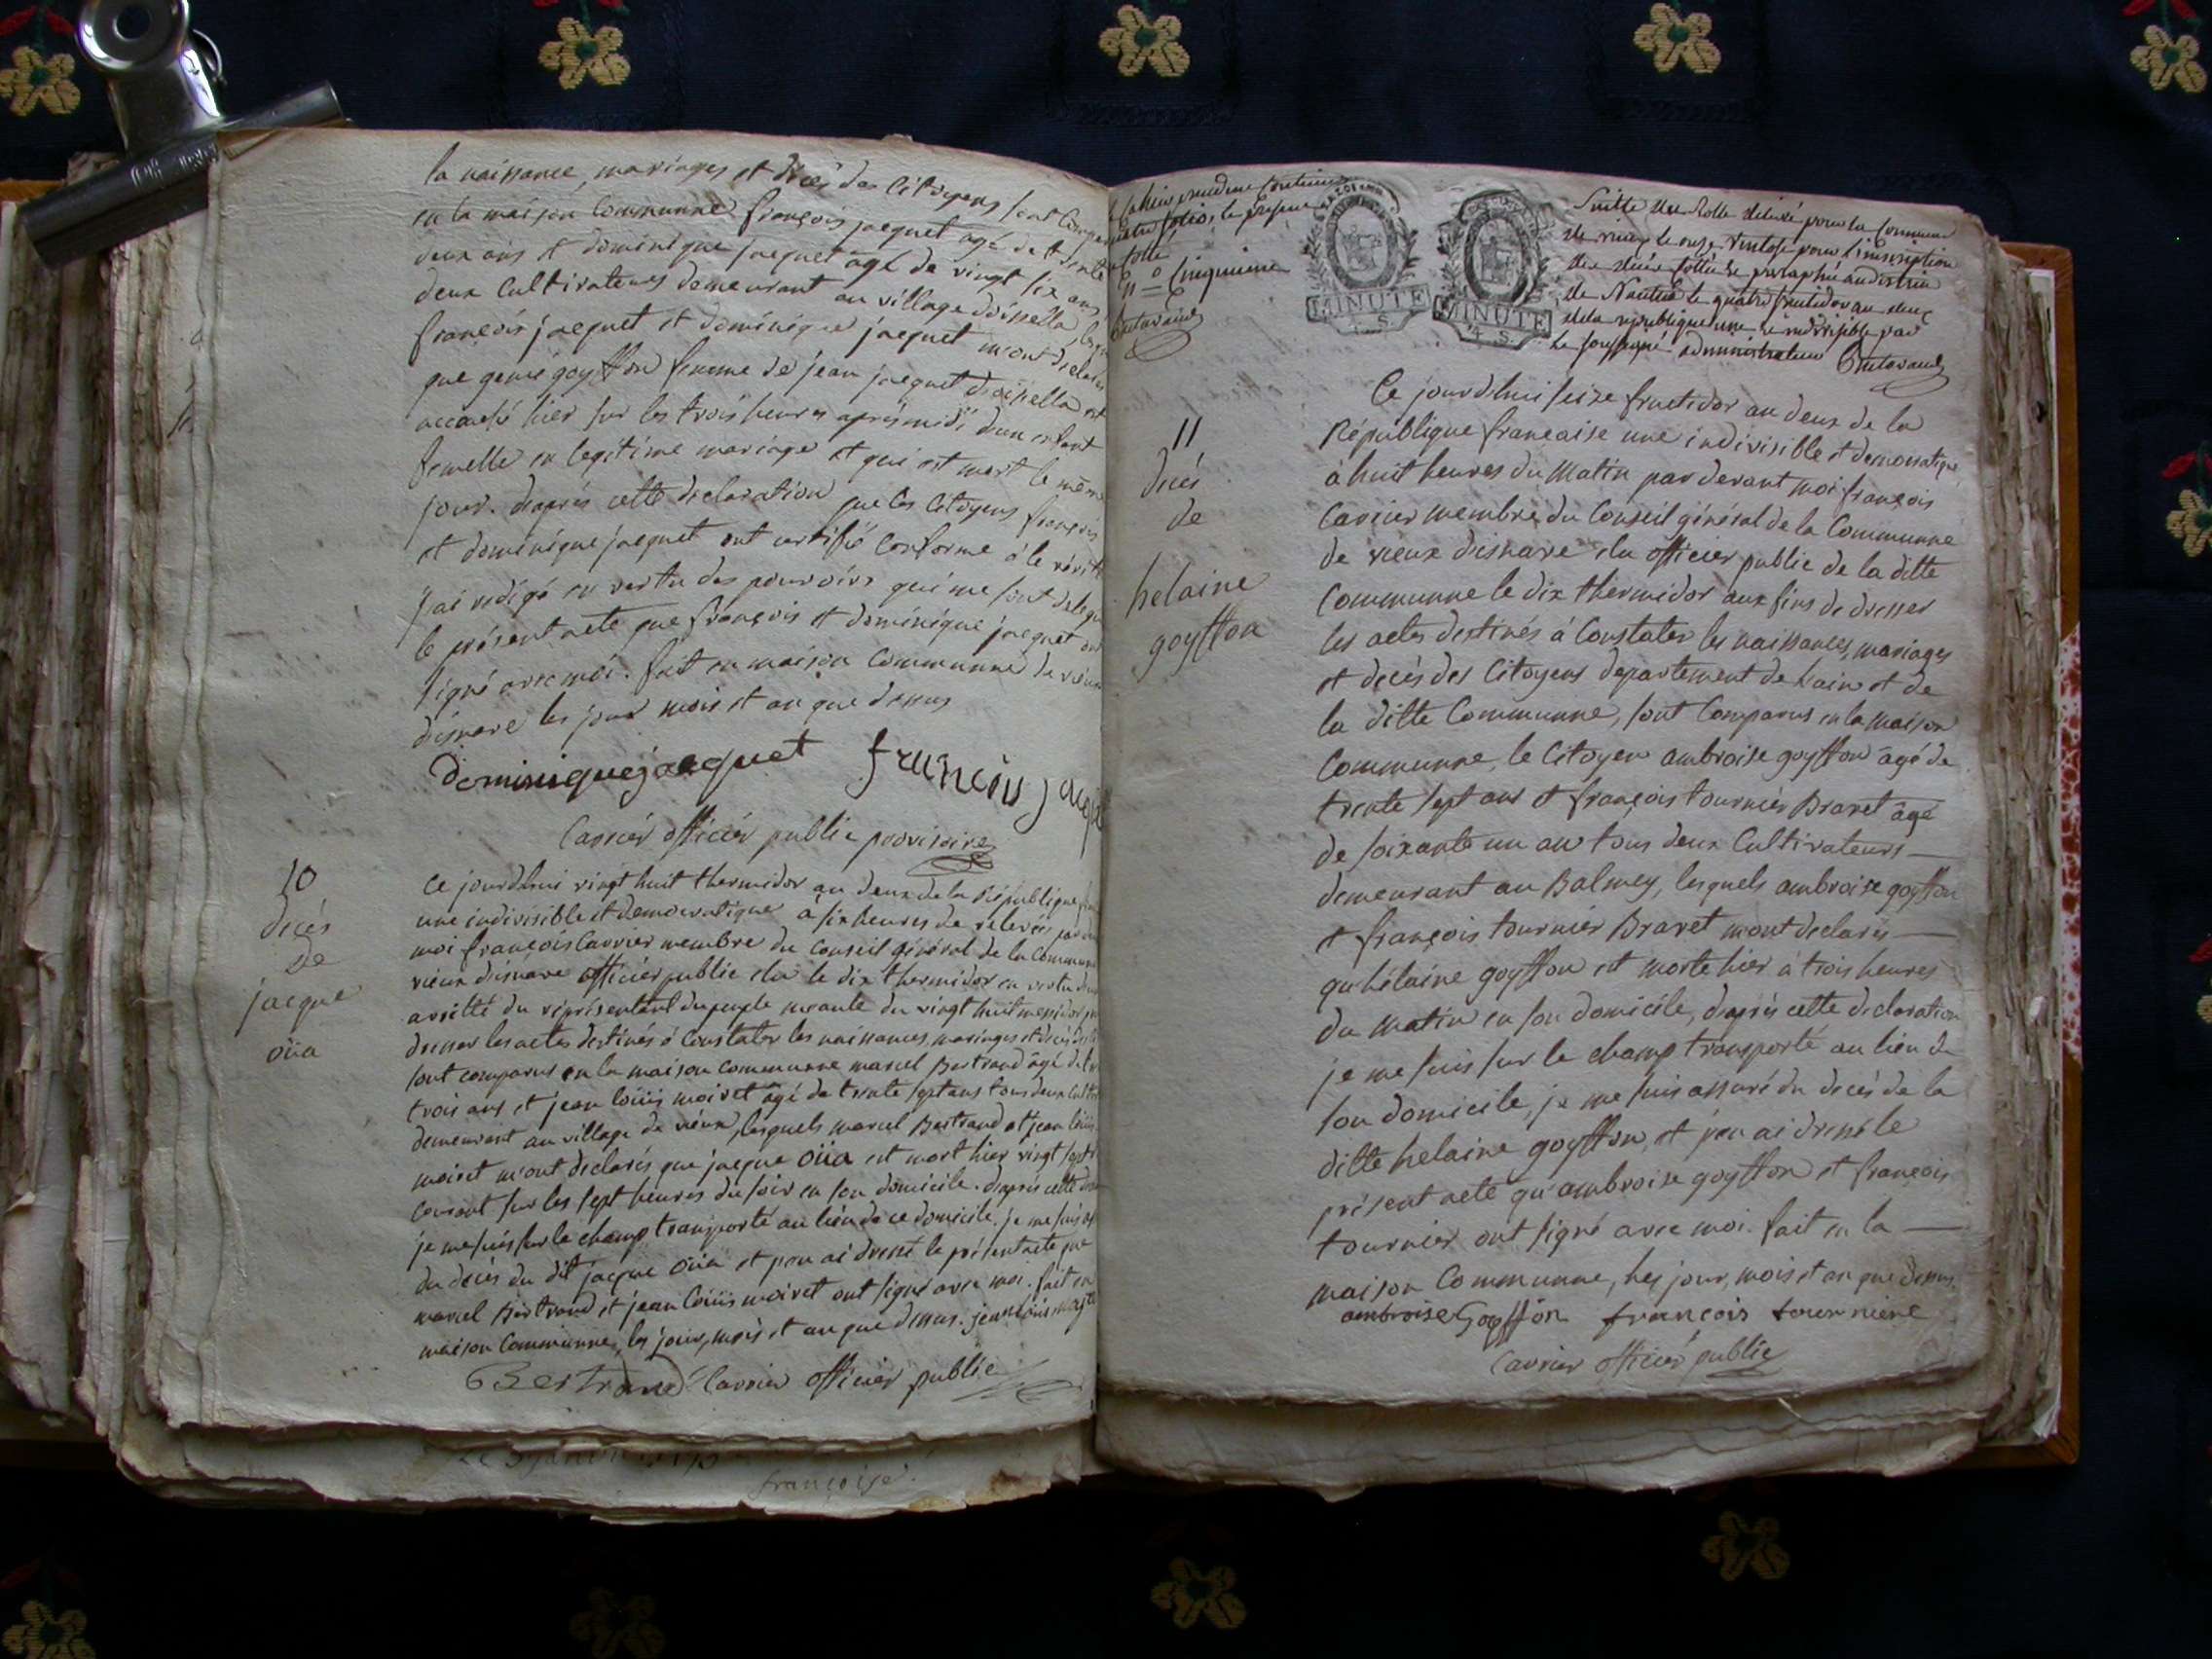 la naissance, mariages et decès des Citoyens sont Compar
en la maison Communne françois jaequet agé de trente
deux ans et dominique jaequet âgé de vingt six ans,
deux Cultivateurs demeurant au village
françois jaequet et dominique jaequet mont declarés
que goyffon femme de jean jaequet
accouché hier sur les trois heures aprés midi dun enfant
femelle en legitime mariage et qui est mort le même
jour. daprés cette declaration que les Citoyens françois
et dominique jaequet ont certifié Conforme à le vérité
jai redigé en vertu des pouvoirs qui me sont delegu
le présent acte que françois et dominique jaequet ont
signé avec moi. fait en maison Communne de vieux
disnave les jour mois et an que dessus
dominique jaequet françois jaequ
Carrier officier public provisoire
10
decés
de
jacque
oüa
Ce jourdhui vingt huit thermidor an deux de la République fran
une indivisible et democratique à six heures de relevée par
moi françois Carrier membre du Conseil général de la Commune
vieux disnave officier public elu le dix thermidor en vertu dun
arrêtté du réprésentant du peuple meaulle du vingt huit messidor
dresser les actes destinés à Constater les naissances, mariages et decès
sont comparus en la maison Communne marcel Bertrand âgé de
trois ans et jean loüis moiret âgé de trente sept ans tous deux Cult
demeurant au village de vieux, lesquels marcel Bertrand et jean loüis
moiret m'ont declarés que jacque oüa est mort hier vingt sept
Courant sur les sept heures du soir en son domicile. daprés cette
je me suis sur le champ transporté au lieu de ce domicile. je me suis
du decès du dit jacque oüa et jen ai dressé le présent acte que
marcel Bertrand et jean loüis moiret ont signé avec moi. fait en
maison Communne, les jour, mois et an que dessus. jean louis
Bertrand Carrier officier public
françoise.
N° Cinquieme
MINUTE
4 S.
MINUTE
4 S.
Suitte du Rolle délivré pour la Commune
de vieux le onze ventose pour l'inscription
des décès Cottée et paraphée au district
de Nantua le quatre fructidor an deux
de la republique une et indivisible par
le soussigné administrateur
11
decés
de
helaine
goyffon
Ce jourdhui seize fructidor an deux de la
République francaise une indivisible et democratique
à huit heures du Matin par devant moi françois
Carrier membre du Conseil général de la Communne
de vieux disnave elu officier public de la ditte
Communne le dix thermidor aux fins de dresser
les actes destinés à Constater les naissances, mariages
et decès des Citoyens departement de Lain et de
la ditte Communne, sont Comparus en la maison
Communne, le Citoyen ambroise goyffon âgé de
trente sept ans et françois tournier Bravet âgé
de soixante un an tous deux Cultivateurs
demeurant au Balmey, lesquels ambroise goyffon
et françois tournier Bravet mont declarés
qu'hélaine goyffon est morte hier à trois heures
du matin en son domicile, daprés cette declaration
je me suis sur le champ transporté au lieu de
son domicile, je me suis assuré du decès de la
ditte helaine goyffon, et j'en ai dressé le
présent acte qu'ambroise goyffon et françois
tournier ont signé avec moi. fait en la
maison Communne, les jour, mois et an que dessus.
ambroise Goyffon françois tourniere
Carrier officier public